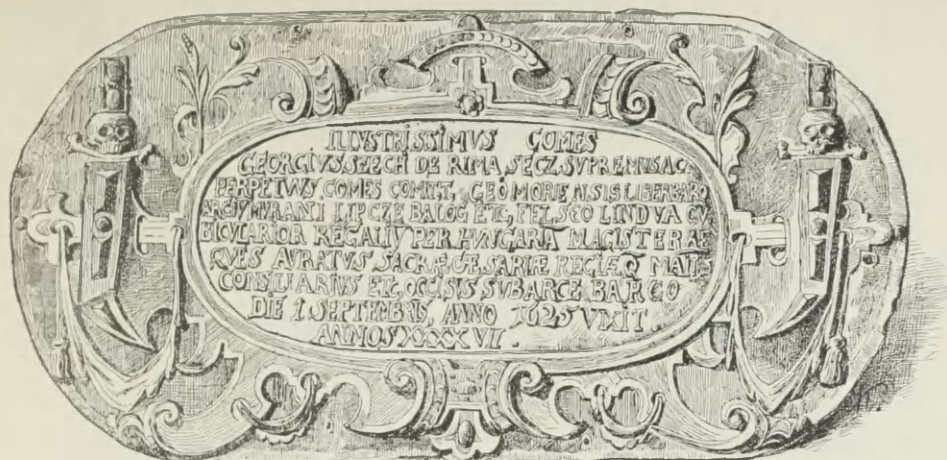 ILLUSTRISSIMUS COMES
GEORGIUS SZECH DE RIMA SECZ SUPREMUS AC
PERPETUUS COMES COMIT, GEÖMORIENSIS LIBER BARO
ARCIV MURANI LIPCZE BALOG ETC, FELSEO LINDVA CU
BICULARIOR REGALIV PER HUNGARIA MAGISTER AE
QUES AURATUS SACRÆ CÆSARIÆ REGIÆQ MATIS
CONSILIARIUS ETC, OCCISUS SUB ARCE BARGO
DIE 1. SEPTEMBRIS, ANNO 1625 VIXIT.
ANNOS XXXXVI.